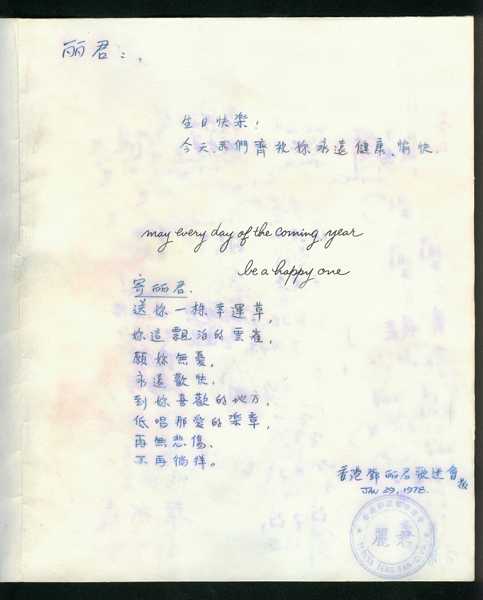 丽君：，
生日快楽！
今天，我們齊祝妳永遠健康、愉快．
may every day of the coming year
be a happy one
寄丽君．
送妳一株幸運草，
妳這飄泊的雲雀，
願妳無憂，
永遠歡快，
到妳喜歡的地方，
低唱那愛的楽章，
再無悲傷、
不再徜徉。
香港鄧丽君歌迷會敬
JAN 29, 1978.
麗君